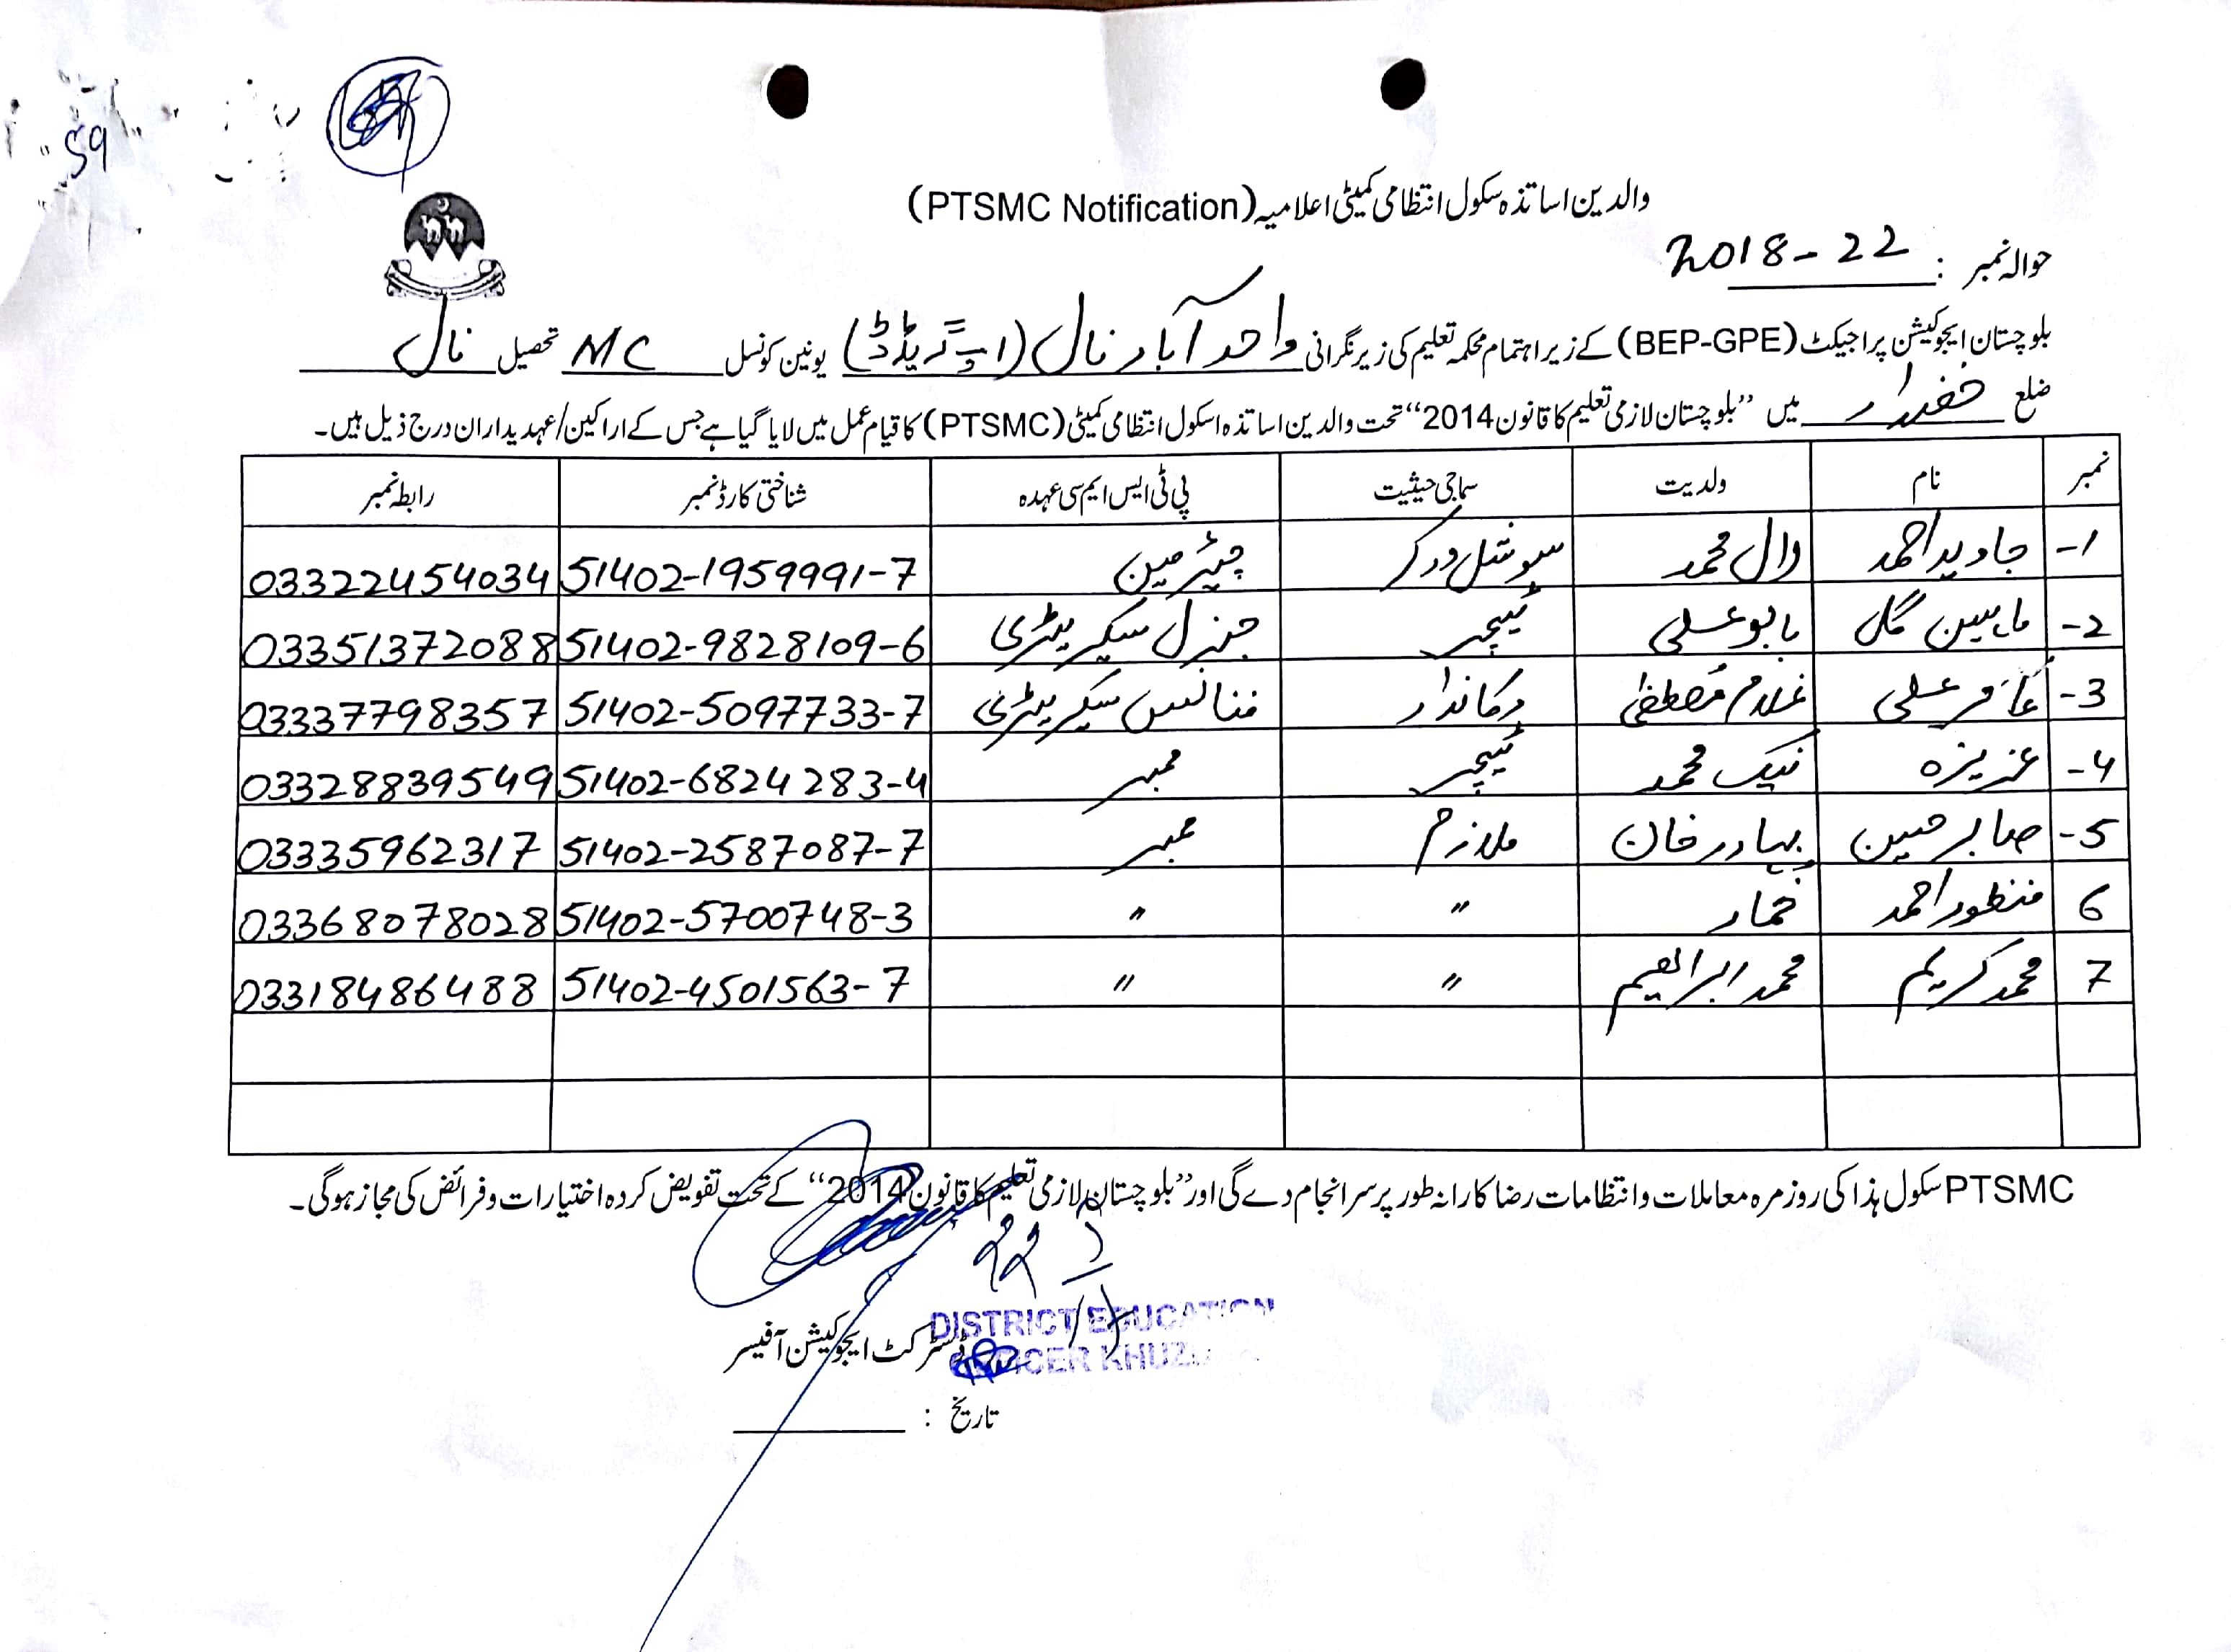 59
والدین اساتذہ سکول انتظامی کمیٹی اعلامیہ (PTSMC Notification)
حوالہ نمبر : 2018-22
بلوچستان ایجوکیشن پراجیکٹ (BEP-GPE) کے زیر اہتمام محکمہ تعلیم کی زیر نگرانی واحد آباد نال (اپ گریڈڈ) یونین کونسل MC تحصیل نال
ضلع خضدار میں ”بلوچستان لازمی تعلیم کا قانون 2014“ تحت والدین اساتذہ اسکول انتظامی کمیٹی (PTSMC) کا قیام عمل میں لایا گیا ہے جس کے اراکین/عہدیداران درج ذیل ہیں۔
نمبر نام ولدیت سماجی حیثیت پی ٹی ایس ایم سی عہدہ شناختی کارڈ نمبر رابطہ نمبر
1- جاوید احمد لال محمد سوشل ورکر چیئرمین 51402-1959991-7 03322454034
2- ماہین گل بابو علی ٹیچر جنرل سیکریٹری 51402-9828109-6 03351372088
3- علی غلام مصطفیٰ دکاندار فنانس سیکریٹری 51402-5097733-7 03337798357
4- عزیزہ نیک محمد ٹیچر ممبر 51402-6824283-4 03328839549
5- صابر حسین بہادر خان ملازم ممبر 51402-2587087-7 03335962317
6 منظور احمد خمار " " 51402-5700748-3 03368078028
7 محمد کریم محمد ابراھیم " " 51402-4501563-7 03318486488
PTSMC سکول ہذا کی روزمرہ معاملات و انتظامات رضاکارانہ طور پر سرانجام دے گی اور ”بلوچستان لازمی تعلیم کا قانون 2014“ کے تحت تفویض کردہ اختیارات و فرائض کی مجاز ہوگی۔
DISTRICT EDUCATION
ڈسٹرکٹ ایجوکیشن آفیسر
OFFICER KHUZ
تاریخ :